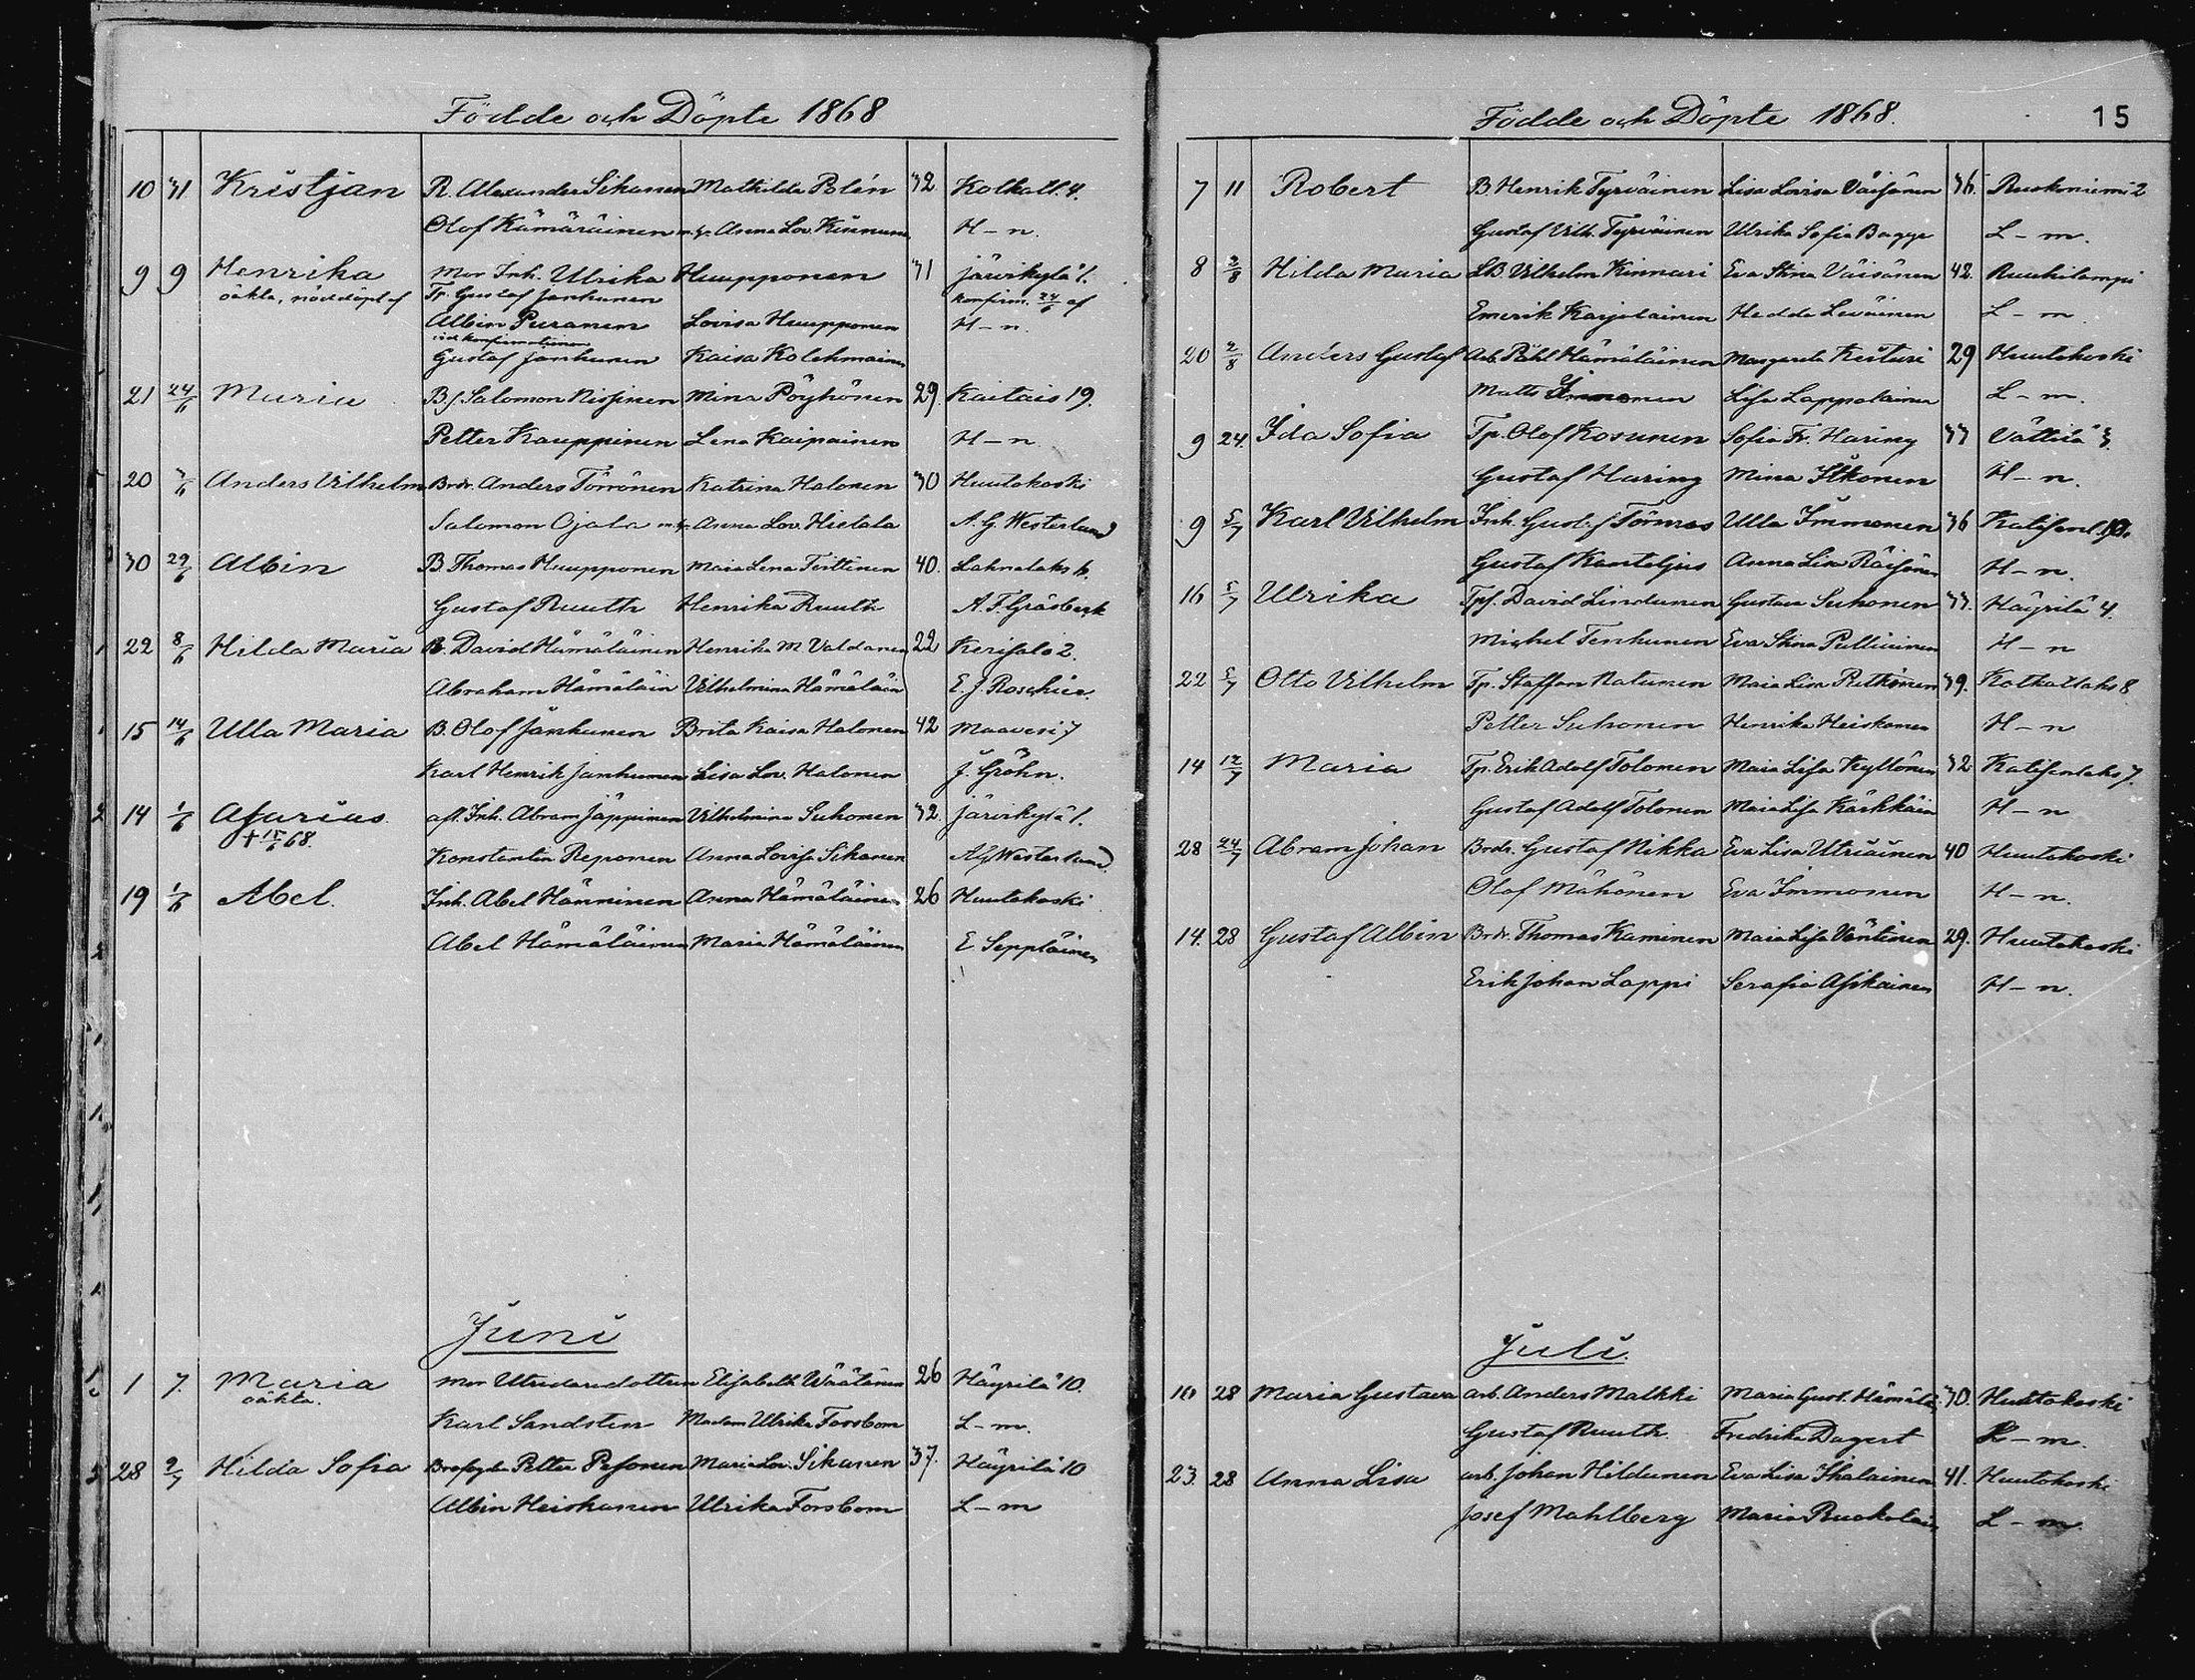 Födde och Döpte 1868
10 31 Kristjan R. Alexander Sikanen Mathilda Polén 32 Kotkatl. 4.
Olof Kämäräinen m. h. Anna Lov. Kinnunen H-n.
9 9 Henrika Mor Inh. Ulrika Huupponen 31 Järvikylä 1.
oäkta, nöddöpt af Tp. Gustaf Janhunen konfirm. 24/6 af
Albin Puranen Lovisa Huupponen H-n.
vid konfirmationen
Gustaf Janhunen Kaisa Kolehmainen
21 24/6 Maria Bf. Salomon Nissinen Mina Pöyhönen 29. Kaitais 19.
Petter Kauppinen Lena Kaipainen H-n
20 7/6 Anders Vilhelm Brdr. Anders Törrönen Katrina Halonen 30 Huutokoski
Salomon Ojala m. h. Anna Lov. Hietala A. G. Westerlund
30 29/6 Albin B. Thomas Huupponen Maia Lena Teittinen 40. Lahnalaks
Gustaf Ruuth Henrika Ruuth A. F. Gräsbeck
22 8/6 Hilda Maria B. David Hämäläinen Henrika M Valdanen 22 Kerisalo 2.
Abraham Hämäläin Vilhelmina Hämäläin E. J. Roschier.
15 14/6 Ulla Maria B. Olof Janhunen Brita Kaisa Halonen 42 Maavesi 7
Karl Henrik Janhunen Lisa Lov. Halonen J. Gröhn.
14 1/6 Asarias afl. Inh. Abram Jäppinen Vilhelmina Suhonen 32. Järvikylä 1.
+ 15/6 68.
Konstantin Reponen Anna Lovisa Sikanen A G Westerlund
19 1/6 Abel. Inh. Abel Hänninen Anna Hämäläinen 26 Huutokoski
Abel Hämäläinen Maria Hämäläinen E. Seppläinen
Juni
1 7. Maria Mor Elisabeth Wäätänen 26 Häyrilä 10.
oäkta.
Karl Sandsten Madam Ulrika Forsbom L-m.
28 2/7 Hilda Sofia Petter Pesonen Maria Lov. Sikanen 37. Häyrilä 10
Albin Heiskanen Ulrika Forsbom L-m
Födde och Döpte 1868. 15
7 11 Robert B. Henrik Tyrväinen Lisa Lovisa Väisänen 36. Ruokoniemi 2
Gustaf Vilh. Tyrväinen Ulrika Sofia Bagge L-m.
8 2/8 Hilda Maria LB. Vilhelm Kinnari Eva Stina Väisänen 42. Ruuhilampi
Emerik Karjalainen Hedda Leväinen L-m
20 2/8 Anders Gustaf Arb. Påhl Hämäläinen Margareta Keituri 29 Huutokoski
Matts Immonen Lisa Lappalainen L-m.
9 24. Ida Sofia Tp. Olof Kosunen Sofia Fr. Haring 33 Vättilä 3.
Gustaf Haring Mina Itkonen H-n.
9 5/7 Karl Vilhelm Inh. Gust. Törnros Ulla Immonen 36
Gustaf Kanteljus Anna Lisa Räisänen H-n.
16 5/7 Ulrika Tpf. David Lindunen Gustava Suhonen 33. Häyrilä 4.
Michel Tenhunen Eva Stina Pulliainen H-n
22 5/7 Otto Vilhelm Tp. Staffan Natunen Maia Lisa Ritkönen 39. Kotkatlaks 8
Petter Suhonen Henrika Heiskanen H-n
14 12/7 Maria Tp. Erik Adolf Tolonen Maia Lisa Kyllönen 32 Katisenlaks 7.
Gustaf Adolf Tolonen Maia Lisa Kärkkäin H-n
28 24/7 Abram Johan Brdr. Gustaf Nikka Eva Lisa Utriainen 40 Huutokoski
Olof Mähönen Eva Immonen H-n.
14. 28 Gustaf Albin Brdr. Thomas Kaminen Maia Lisa Väntinen 29. Huutokoski
Erik Johan Lappi Serafia Asikainen H-n.
Juli.
16 28 Maria Gustava arb. Anders Malkki Maria Gust. Hämälä. 30. Huutokoski
Gustaf Ruuth. Fredrika Dagert L-m.
23. 28 Anna Lisa arb. Johan Hildunen Eva Lisa Ihalainen 41. Huutokoski
Josef Mahlberg Maria Ruokolain L-m.